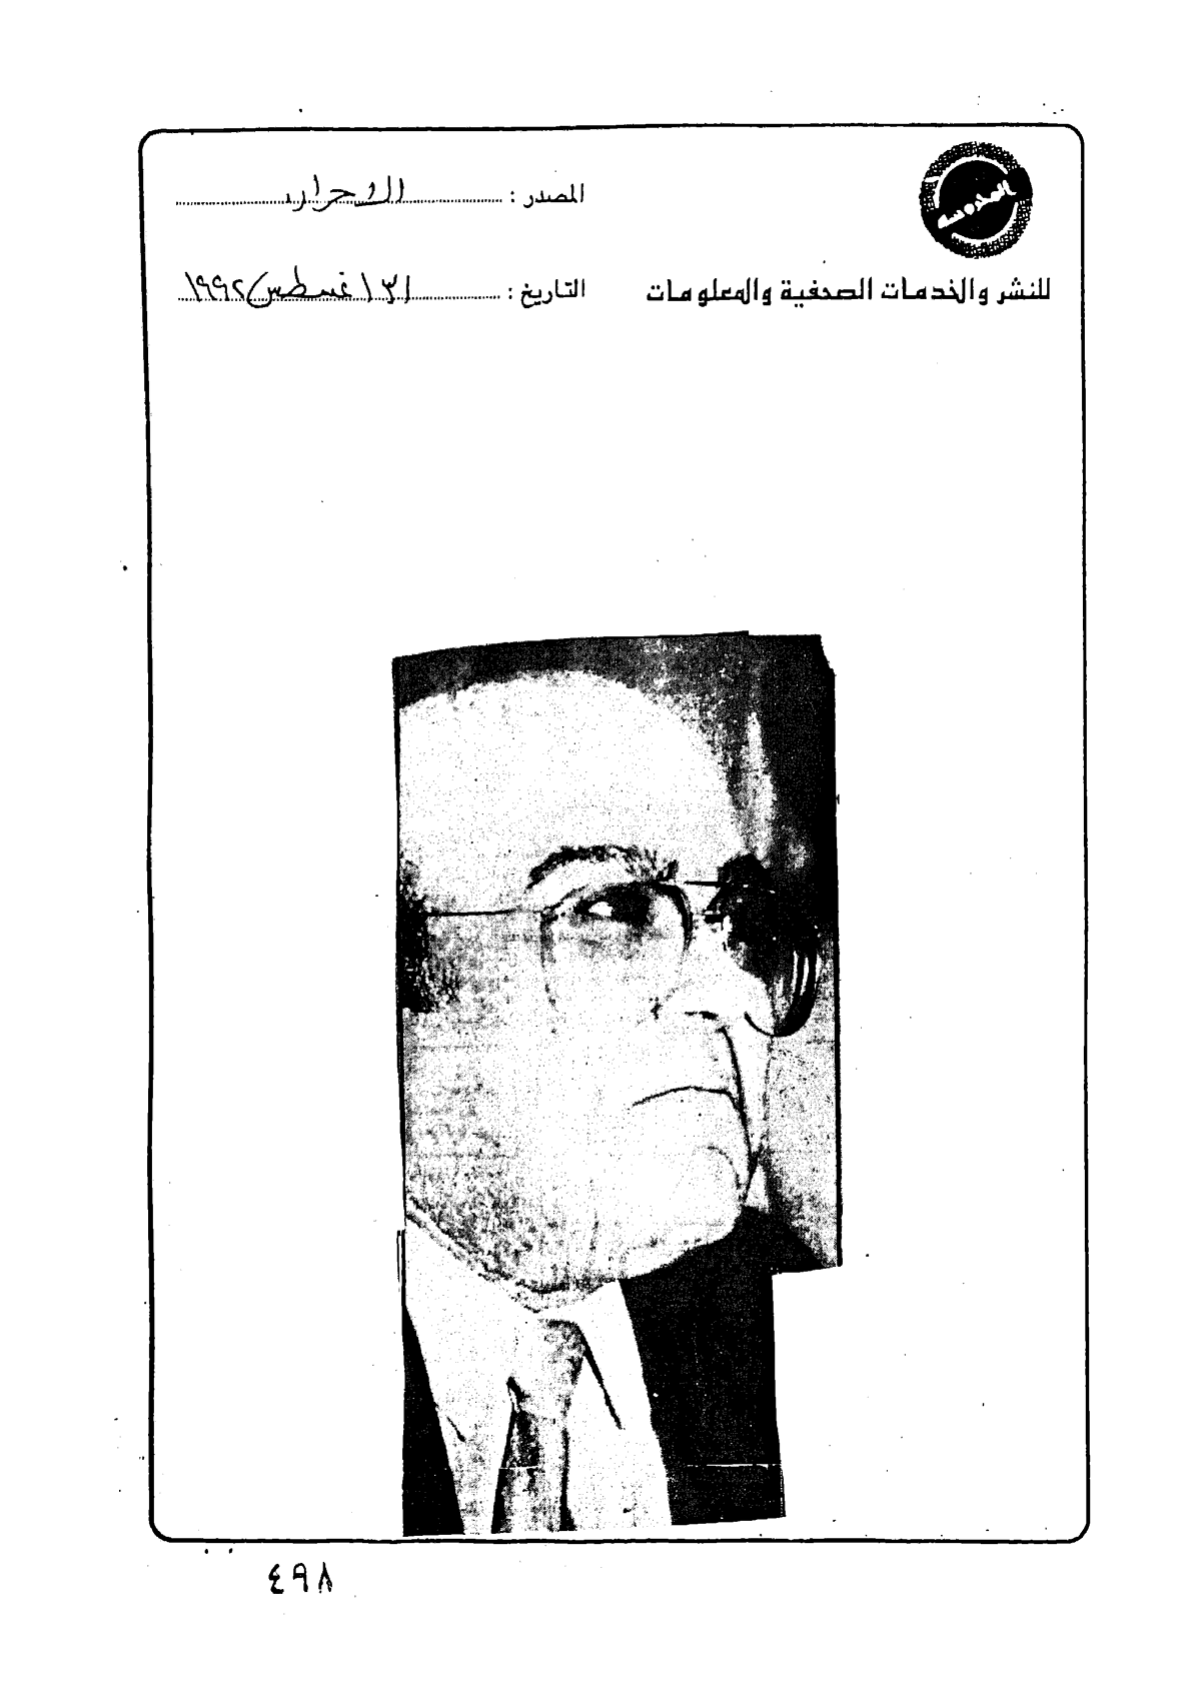 المحروسة
المصدر : الاحرار
للنشر والخدمات الصحفية والمعلومات
التاريخ : ٣١ اغسطس ١٩٩٢
٤٩٨